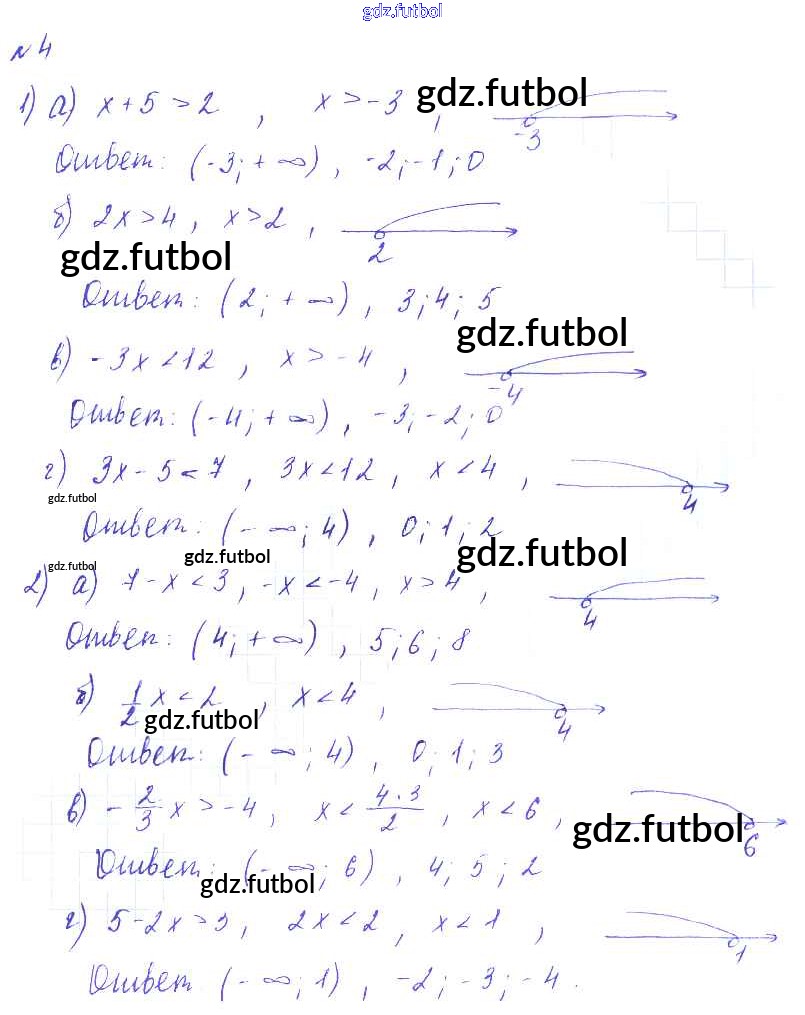 gdz.futbol
№ 4
1) а) x + 5 > 2 , x > -3 , gdz.futbol -3
Ответ: (-3; + ∞) , -2; -1; 0
б) 2x > 4 , x > 2 , 2
gdz.futbol
Ответ: (2; + ∞) , 3; 4; 5
gdz.futbol
в) -3x < 12 , x > -4 , -4
Ответ: (-4; + ∞) , -3; -2; 0
г) 3x - 5 < 7 , 3x < 12 , x < 4 , 4
gdz.futbol
Ответ: (- ∞; 4) , 0; 1; 2
gdz.futbol gdz.futbol gdz.futbol
2) а) 7 - x < 3 , -x < -4 , x > 4 , 4
Ответ: (4; + ∞) , 5; 6; 8
б) 1/2 x < 2 , x < 4 , 4
gdz.futbol
Ответ: (- ∞; 4) , 0; 1; 3
в) - 2/3 x > -4 , x < 4·3/2 , x < 6 , 6
gdz.futbol
Ответ: (- ∞; 6) , 4; 5; 2
gdz.futbol
г) 5 - 2x > 3 , 2x < 2 , x < 1 , 1
Ответ (- ∞; 1) , -2; -3; -4.